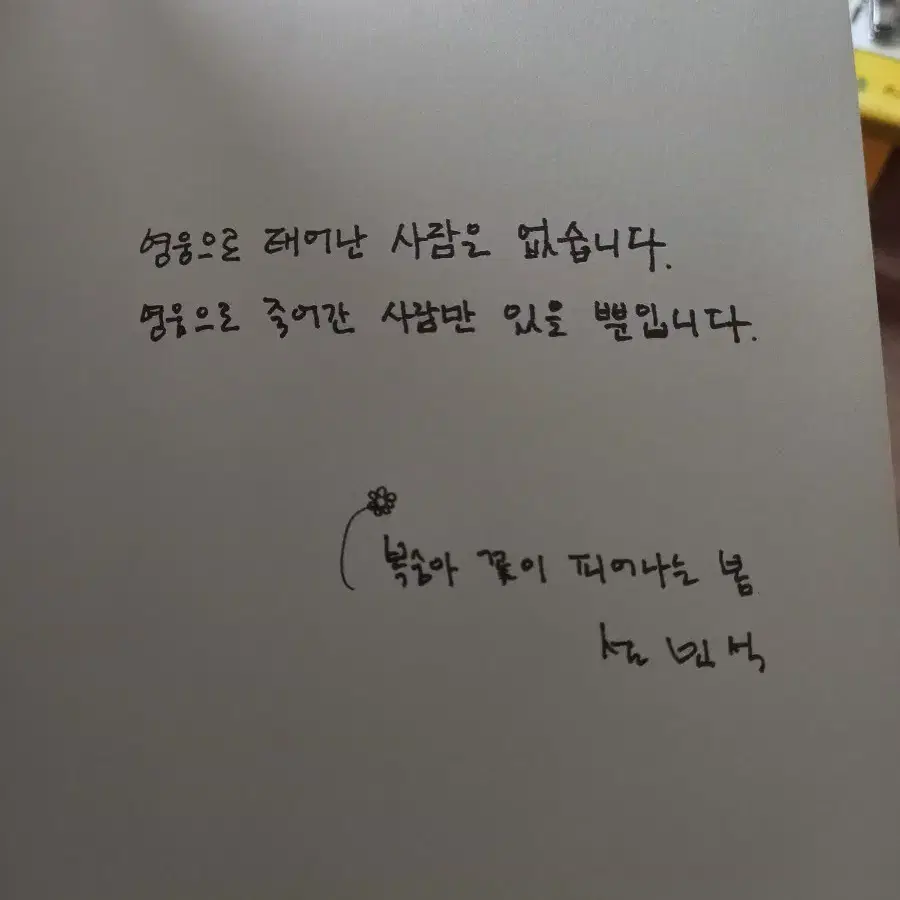 영웅으로 태어난 사람은 없습니다.
영웅으로 죽어간 사람만 있을 뿐입니다.
복숭아 꽃이 피어나는 봄
설 민 석